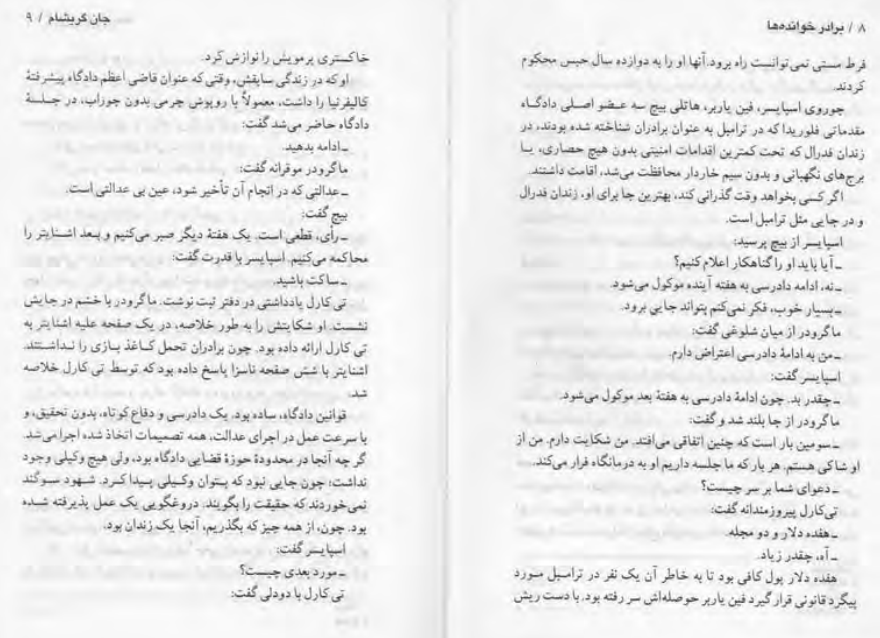 ۸ / برادر خوانده‌ها
فرط مستی نمی‌توانست راه برود. آنها او را به دوازده سال حبس محکوم
کردند.
جوروی اسپایسر، فین یاربر، هاتلی بیچ سه عضو اصلی دادگاه
مقدماتی فلوریدا که در ترامبل به عنوان برادران شناخته شده بودند، در
زندان فدرال که تحت کمترین اقدامات امنیتی بدون هیچ حصاری، یا
برج‌های نگهبانی و بدون سیم خاردار محافظت می‌شد، اقامت داشتند.
اگر کسی بخواهد وقت گذرانی کند، بهترین جا برای او، زندان فدرال
و در جایی مثل ترامبل است.
اسپایسر از بیچ پرسید:
ـ آیا باید او را گناهکار اعلام کنیم؟
ـ نه، ادامه دادرسی به هفته آینده موکول می‌شود.
ـ بسیار خوب، فکر نمی‌کنم بتواند جایی برود.
ماگرودر از میان شلوغی گفت:
ـ من به ادامهٔ دادرسی اعتراض دارم.
اسپایسر گفت:
ـ چقدر بد. چون ادامهٔ دادرسی به هفتهٔ بعد موکول می‌شود.
ماگرودر از جا بلند شد و گفت:
ـ سومین بار است که چنین اتفاقی می‌افتد. من شکایت دارم. من از
او شاکی هستم. هر بار که ما جلسه داریم او به درمانگاه فرار می‌کند.
ـ دعوای شما بر سر چیست؟
تی‌کارل پیروزمندانه گفت:
ـ هفده دلار و دو مجله.
ـ آه، چقدر زیاد.
هفده دلار پول کافی بود تا به خاطر آن یک نفر در ترامبل مورد
پیگرد قانونی قرار گیرد فین یاربر حوصله‌اش سر رفته بود. با دست ریش
جان گریشام / ۹
خاکستری پرمویش را نوازش کرد.
او که در زندگی سابقش، وقتی که عنوان قاضی اعظم دادگاه پیشرفتهٔ
کالیفرنیا را داشت، معمولاً با روپوش چرمی بدون جوراب، در جلسهٔ
دادگاه حاضر می‌شد گفت:
ـ ادامه بدهید.
ماگرودر موقرانه گفت:
ـ عدالتی که در انجام آن تأخیر شود، عین بی عدالتی است.
بیچ گفت:
ـ رأی، قطعی است. یک هفتهٔ دیگر صبر می‌کنیم و بعد اشنایتر را
محاکمه می‌کنیم. اسپایسر با قدرت گفت:
ـ ساکت باشید.
تی کارل یادداشتی در دفتر ثبت نوشت. ماگرودر با خشم در جایش
نشست. او شکایتش را به طور خلاصه، در یک صفحه علیه اشنایتر به
تی کارل ارائه داده بود. چون برادران تحمل کاغذ بازی را نداشتند.
اشنایتر با شش صفحه ناسزا پاسخ داده بود که توسط تی کارل خلاصه
شد.
قوانین دادگاه، ساده بود. یک دادرسی و دفاع کوتاه، بدون تحقیق، و
با سرعت عمل در اجرای عدالت، همه تصمیمات اتخاذ شده اجرا می‌شد.
گر چه آنجا در محدودهٔ حوزهٔ قضایی دادگاه بود، ولی هیچ وکیلی وجود
نداشت؛ چون جایی نبود که بتوان وکیلی پیدا کرد. شهود سوگند
نمی‌خوردند که حقیقت را بگویند. دروغگویی یک عمل پذیرفته شده
بود. چون، از همه چیز که بگذریم، آنجا یک زندان بود.
اسپایسر گفت:
ـ مورد بعدی چیست؟
تی کارل با دودلی گفت: